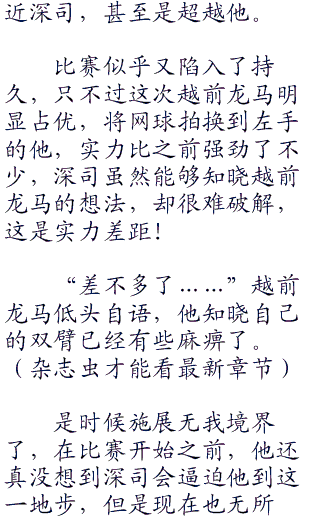 近深司，甚至是超越他。
比赛似乎又陷入了持
久，只不过这次越前龙马明
显占优，将网球拍换到左手
的他，实力比之前强劲了不
少，深司虽然能够知晓越前
龙马的想法，却很难破解，
这是实力差距！
“差不多了……”越前
龙马低头自语，他知晓自己
的双臂已经有些麻痹了。
（杂志虫才能看最新章节）
是时候施展无我境界
了，在比赛开始之前，他还
真没想到深司会逼迫他到这
一地步，但是现在也无所